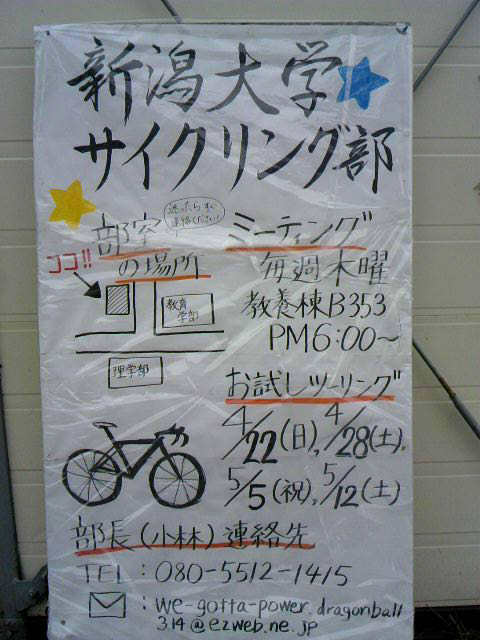 新潟大学
サイクリング部
迷ったらすぐ
連絡ください!
部室
の場所
ココ!!
教育
学部
理学部
ミーティング
毎週木曜
教養棟B353
PM6:00〜
お試しツーリング
4/22(日), 4/28(土),
5/5(祝), 5/12(土)
部長(小林)連絡先
TEL:080-5512-1415
:we-gotta-power.dragonball
314@ezweb.ne.jp